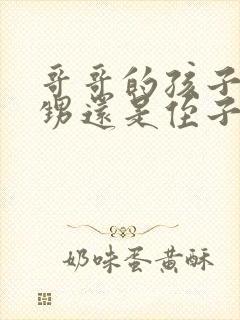 哥哥的孩子
甥還是侄子
奶味蛋黄酥